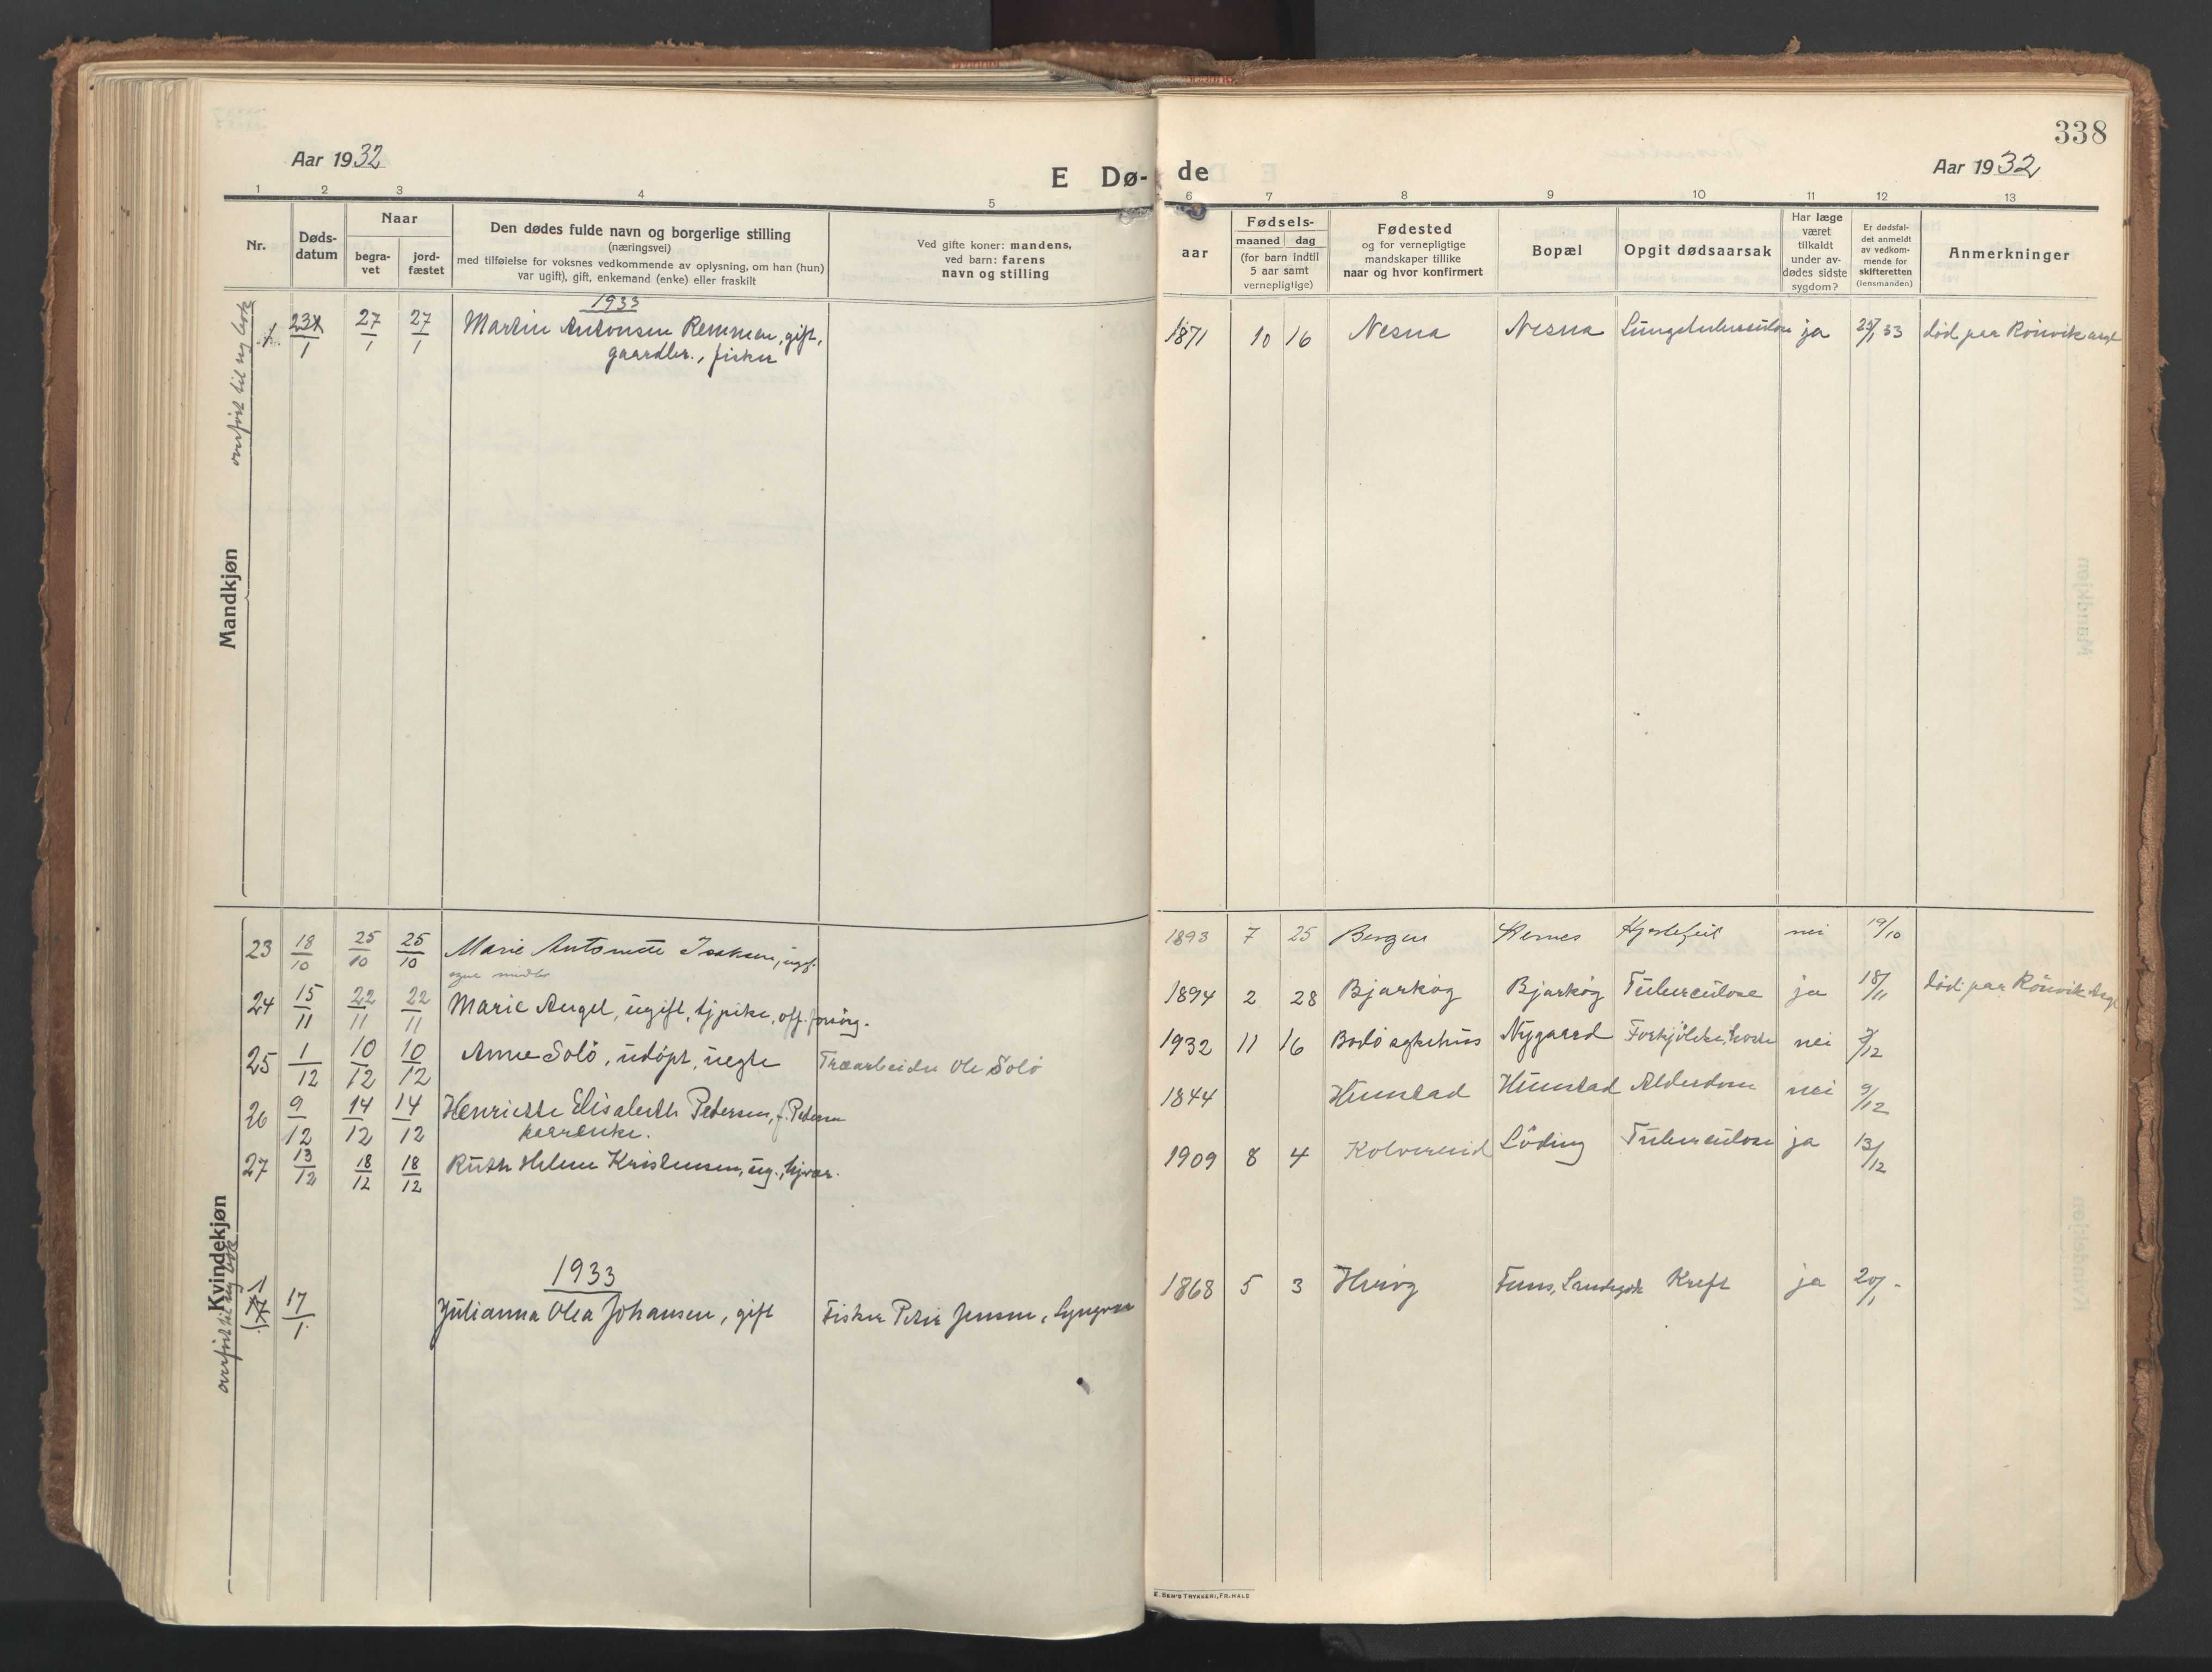 338
Aar 1932
E Dø-
de
Aar 1932
1 2 3 4 5 6 7 8 9 10 11 12 13
Nr.
Døds-
datum
Naar
begra-
vet
jord-
fæstet
Den dødes fulde navn og borgerlige stilling
(næringsvei)
med tilføielse for voksnes vedkommende av oplysning, om han (hun)
var ugift), gift, enkemand (enke) eller fraskilt
Ved gifte koner: mandens,
ved barn: farens
navn og stilling
aar
Fødsels-
maaned dag
(for barn indtil
5 aar samt
vernepligtige)
Fødested
og for vernepligtige
mandskaper tillike
naar og hvor konfirmert
Bopæl
Opgit dødsaarsak
Har læge
været
tilkaldt
under av-
dødes sidste
sygdom?
Er dødsfal-
det anmeldt
av vedkom-
mende for
skifteretten
(lensmanden)
Anmerkninger
overført til ny bok
Mandkjøn
1933
1. 23/1 27/1 27/1 Martin Antonsen Remmen, gift, 1871 10 16 Nesna Nesna Lungetuberculose ja 25/1 33 død paa Rönvik asyl
gaardbr., fisker
23 18/10 25/10 25/10 Marie Antonette Isaksen, ugf. 1893 7 25 Bergen Hernes Hjertefeil nei 19/10
egne midler
24 15/11 22/11 22/11 Marie Angel, ugift, tj pike, off. forsörg. 1894 2 28 Bjarköy Bjarköy Tuberculose ja 18/11 död paa Rönvik Asyl
25 1/12 10/12 10/12 Anne Solö, udöpt, uegte Træarbeider Ole Solö 1932 11 16 Bodö sykehus Nygaard Forkjölelse, hoste nei 3/12
26 9/12 14/12 14/12 Henriette Elisabeth Petersen, f. Petersen 1844 Hunstad Hunstad Alderdom nei 9/12
kaarenke.
27 13/12 18/12 18/12 Ruth Helene Kristensen, ug., hjvær. 1909 8 4 Kolvereid Löding Tuberculose ja 13/12
Kvindekjøn
overført til ny bok
1933
1 17/1 Julianna Olea Johansen, gift Fisker Peder Jensen, Lyngvær 1868 5 3 Heröy Kreft ja 20/1 -
E. SEM'S TRYKKERI, FR.HALD